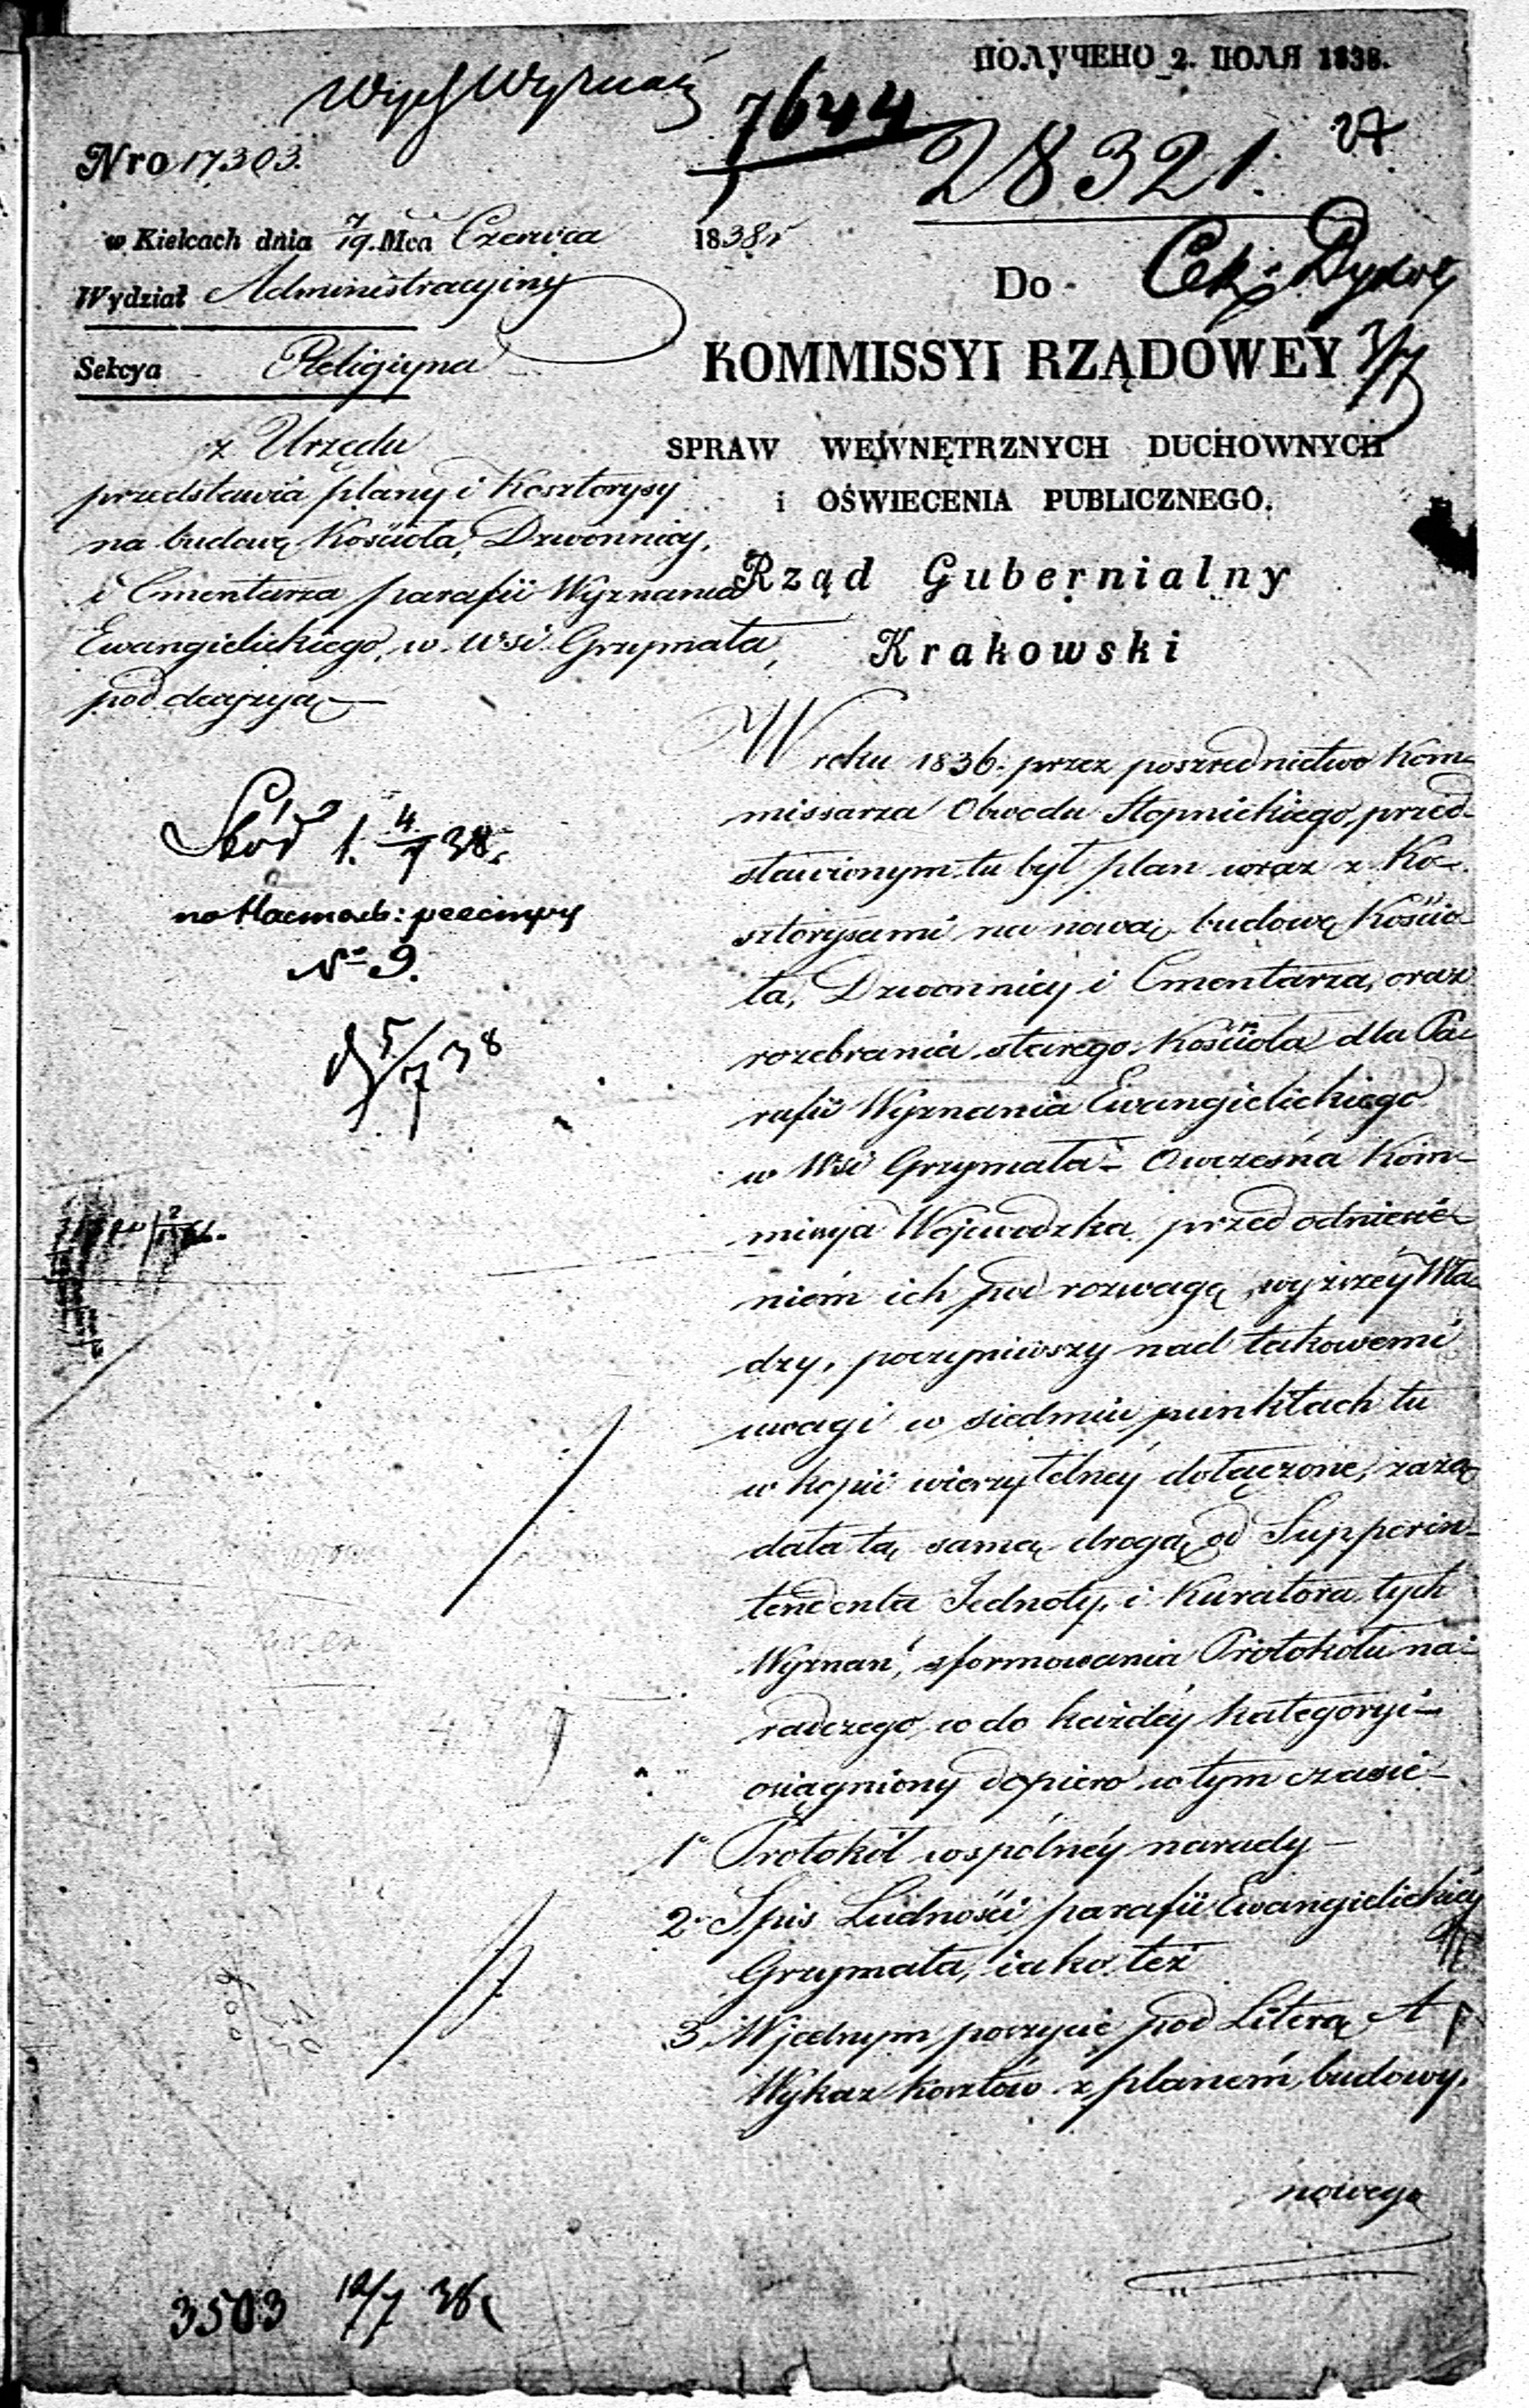 ПОЛУЧЕНО 2. ІЮЛЯ 1838.
7644
28321.
27
Nro 17303.
w Kielcach dnia 7/19. Mca Czerwca 1838 r
Wydział Administracyiny
Sekcya Religiyna
z Urzędu
przedstawia plany i Kosztorysy
na budowę Kościoła, Dzwonnicy,
i Cmentarza parafii Wyznania
Ewangielickiego, w wsi Grzymała,
pod decyzyą
4/7 38.
No 9.
5/7 38
Do
3/7
KOMMISSYI RZĄDOWEY
SPRAW WEWNĘTRZNYCH DUCHOWNYCH
i OŚWIECENIA PUBLICZNEGO.
Rząd Gubernialny
Krakowski
W roku 1836. przez pośrednictwo Kom-
missarza Obwodu Stopnickiego, przed-
stawionym tu był plan wraz z Ko-
sztorysami na nową budowę Kościo-
ła, Dzwonnicy i Cmentarza, oraz
rozebrania starego Kościoła dla Pa-
rafii Wyznania Ewangielickiego
w Wsi Grzymała - Owczesna Kom-
missya Wojewodzka przed odniesie-
niem ich pod rozwagę wyższéy Wła-
dzy, poczyniwszy nad takowemi
uwagi w siedmiu punktach tu
w kopii wierzytelnéy dołączone, zażą-
dała tą samą drogą od Supperin-
tendenta Jednoty, i Kuratora tych
Wyznań, sformowania Protokołu na-
radczego, co do każdéy kategoryi -
osiągniony dopiero w tym czasie -
1o Protokół wspólnéy narady -
2o Spis Ludności parafii Ewangielickiéy
Grzymała, iako też
3. W jednym poszycie pod Literą A
Wykaz kosztów z planem budowy,
nowego
3503 12/7 38